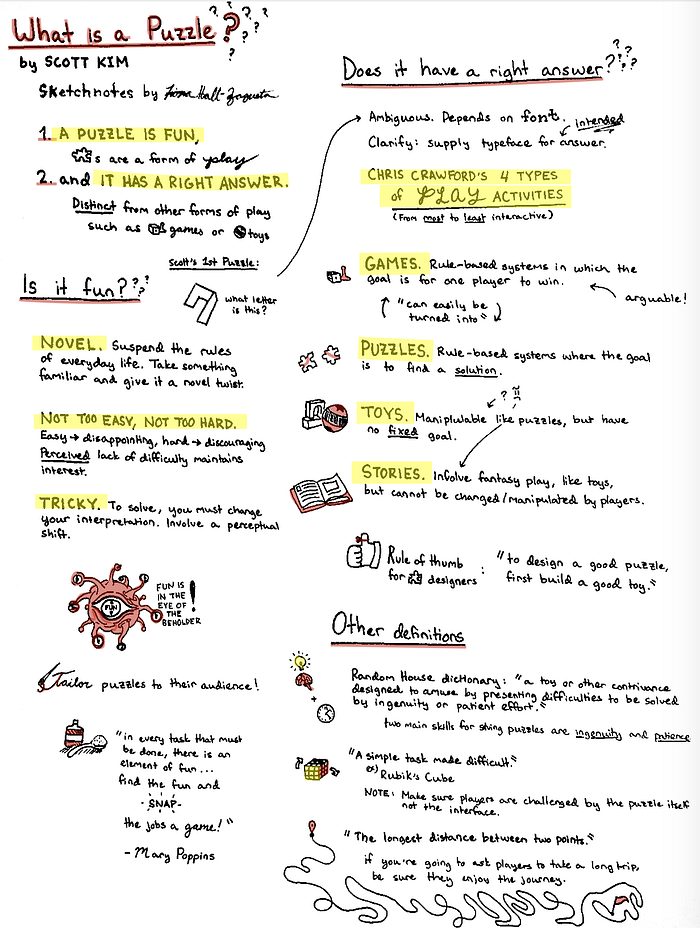 What is a Puzzle?
by SCOTT KIM
Sketchnotes by
1. A PUZZLE IS FUN,
s are a form of play
2. and IT HAS A RIGHT ANSWER.
Distinct from other forms of play
such as games or toys
Scott's 1st Puzzle:
what letter
is this?
Is it fun???
NOVEL. Suspend the rules
of everyday life. Take something
familiar and give it a novel twist.
NOT TOO EASY, NOT TOO HARD.
Easy → disappointing, hard → discouraging
Perceived lack of difficulty maintains
interest.
TRICKY. To solve, you must change
your interpretation. Involve a perceptual
shift.
FUN
FUN IS
IN THE
EYE OF
THE
BEHOLDER!
Tailor puzzles to their audience!
"in every task that must
be done, there is an
element of fun...
find the fun and
-SNAP-
the jobs a game!"
- Mary Poppins
Does it have a right answer????
Ambiguous. Depends on font.
intended
Clarify: supply typeface for answer.
CHRIS CRAWFORD'S 4 TYPES
of PLAY ACTIVITIES
(From most to least interactive)
GAMES. Rule-based systems in which the
goal is for one player to win.
arguable!
"can easily be
turned into"
PUZZLES. Rule-based systems where the goal
is to find a solution.
TOYS. Maniplulable like puzzles, but have
no fixed goal.
STORIES. Involve fantasy play, like toys,
but cannot be changed/manipulated by players.
Rule of thumb
for designers : "to design a good puzzle,
first build a good toy."
Other definitions
Random House dictionary: "a toy or other contrivance
designed to amuse by presenting difficulties to be solved
by ingenuity or patient effort."
two main skills for solving puzzles are ingenuity and patience
"A simple task made difficult."
ex) Rubik's Cube
NOTE: Make sure players are challenged by the puzzle itself
not the interface.
"The longest distance between two points."
if you're going to ask players to take a long trip,
be sure they enjoy the journey.